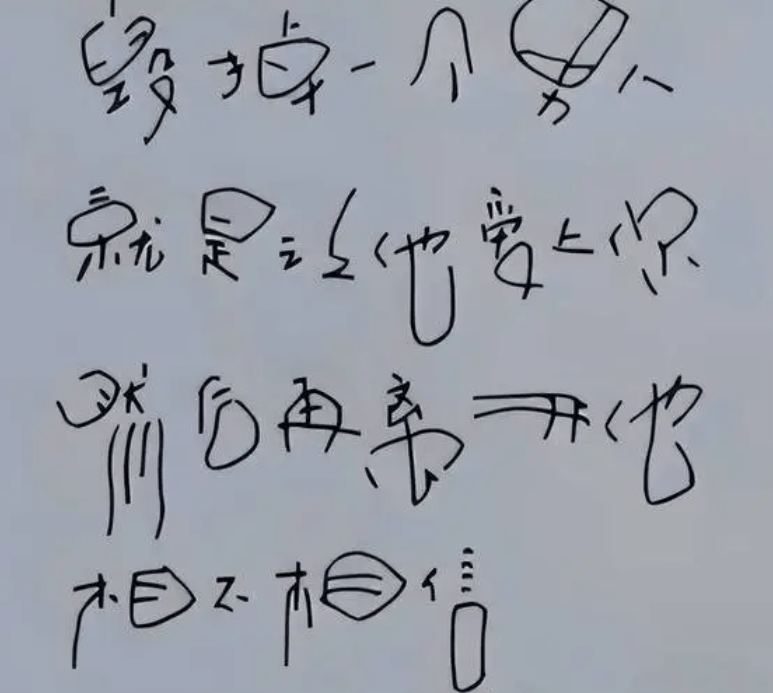 毁掉一个男人
就是让他爱上你
然后再离开他
相不相信